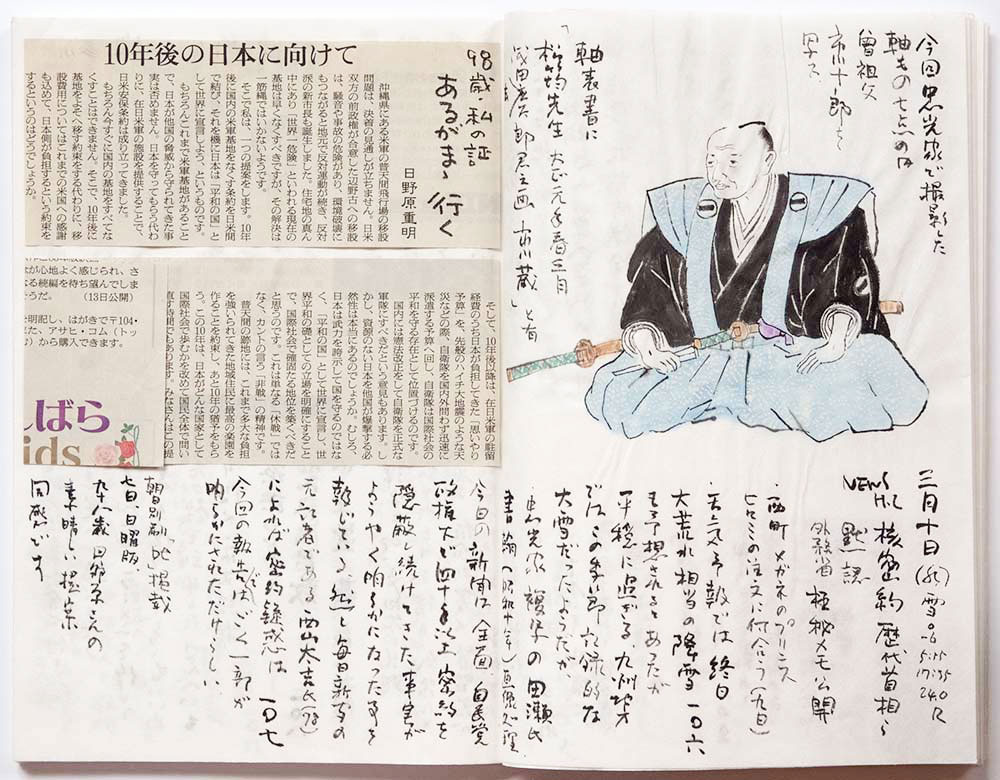 今回忠光家で撮影した
軸もの七点の内
曽祖父
市川十郎と
写ス
「軸裏書に
松韵先生 大正元年春三月
郎君之画 市川蔵」と有
三月十日(水)雪
NEWS 核密約 歴代首相ら
黙認
外務省 極秘メモ公開
・西町メガネのプリンス
の注文に付合う(九日)
・天気予報では終日
大荒れ相当の降雪
予想されるとあったが
平穏に過ぎる、九州地方
ではこの季節記録的な
大雪だったようだが、
・忠光家複写の田瀬氏
書翰(昭和十年)
98歳・私の証
あるがまゝ行く
日野原重明
10年後の日本に向けて
沖縄県にある米軍の普天間飛行場の移設
問題は、決着の見通しが立ちません。日米
双方の前政権が合意した辺野古への移設
は、騒音や事故の危険があり、環境破壊に
もつながると地元で反対運動が続き、反対
派の新市長も誕生しました。住宅地の真ん
中にあり「世界一危険」といわれる現在の
基地は早くなくすべきですが、その解決は
一筋縄ではいかないようです。
そこで私は、一つの提案をします。10年
後に国内の米軍基地をなくす条約を日米間
で結び、それを機に日本は「平和の国」と
して世界に宣言しよう、というものです。
もちろんこれまで米軍基地があること
で、日本が他国の脅威から守られてきた事
実は否めません。日本を守ってもらう代わ
りに、在日米軍の施設を提供することで、
日米安保条約は成り立ってきました。
もちろん今すぐに国内の基地をすべてな
くすことはできません。そこで、10年後に
基地をよそへ移す約束をする代わりに、移
設費用についてはこれまでの米国への感謝
も込めて、日本側が負担するという約束を
するというのはどうでしょうか。
そして、10年後以降は、在日米軍の駐留
経費のうち日本が負担してきた「思いやり
予算」を、先般のハイチ大地震のような天
災などの際、自衛隊を国内外問わず迅速に
派遣する予算へ回し、自衛隊は国際社会の
平和を守る存在として位置づけるのです。
国内には憲法改正をして自衛隊を正式な
軍隊にすべきだという意見もあります。し
かし、資源のない日本を他国が爆撃する必
然性は本当にあるのでしょうか。むしろ、
日本は武力を誇示して国を守るのではな
く、「平和の国」として世界に宣言し、世
界平和の礎としての立場を明確にすること
で、国際社会で確固たる地位を築くべきだ
と思うのです。これは単なる「休戦」では
なく、カントの言う「非戦」の精神です。
普天間の跡地には、これまで多大な負担
を強いられてきた地域住民に最高の楽園を
作ることを約束し、あと10年の猶予をもら
う。この10年は、日本がどんな国家として
国際社会を歩むかを改めて国民全体で問い
直す時間でもあります。みなさんはこの提
が心地よく感じられ、さ
なる続編を待ち望んでしま
うだ。 (13日公開)
を明記し、はがきで〒104・
また、アサヒ・コム(トッ
む)から購入できます。
しばら
ids
今日の新聞は全面、自民党
政権大で四十年以上密約を
隠蔽し続けてきた事実が
ようやく明らかになったことを
報じている。然し毎日新聞の
元記者である西山太吉氏(78)
によれば密約疑惑は一〇七
今回の報告はごく一部が
明らかにされただけらしい
朝日別刷「be」掲載
七日、日曜版、
九十八歳日野原さんの
素晴しい提案
同感です